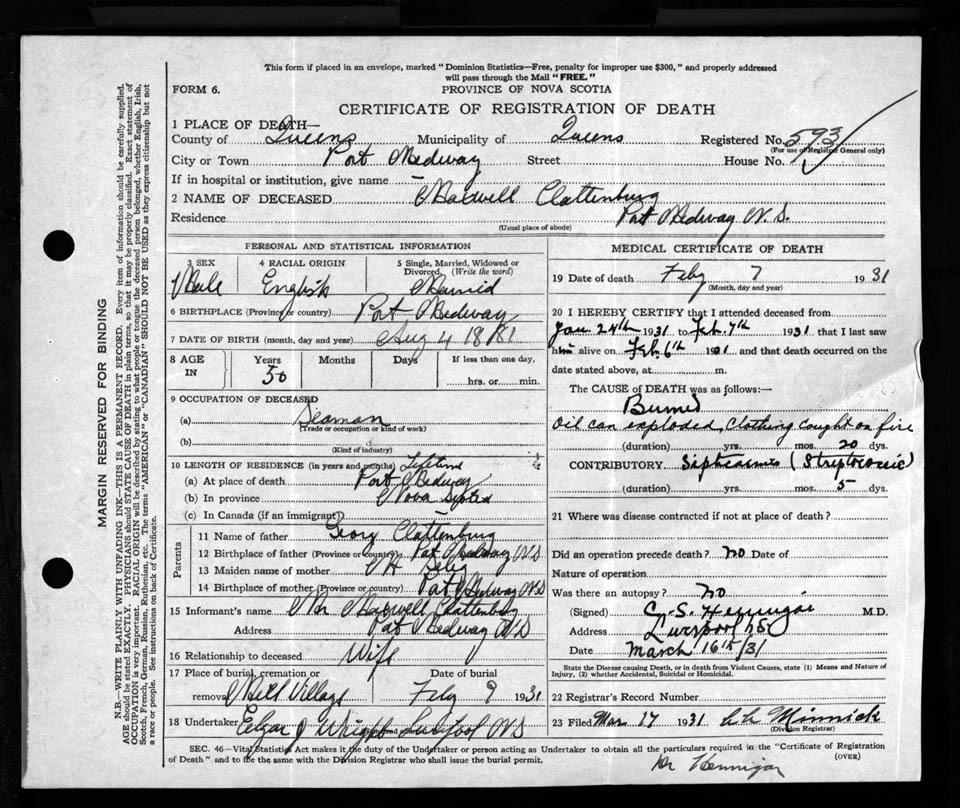 This form if placed in an envelope, marked "Dominion Statistics—Free, penalty for improper use $300," and properly addressed
will pass through the Mail "FREE."
FORM 6.
PROVINCE OF NOVA SCOTIA
CERTIFICATE OF REGISTRATION OF DEATH
1 PLACE OF DEATH—
County of Queens Municipality of Queens Registered No. 593
(For use of Registrar General only)
City or Town Port Medway Street House No.
If in hospital or institution, give name —
2 NAME OF DECEASED Maxwell Clattenburg
Residence Port Medway N.S.
(Usual place of abode)
PERSONAL AND STATISTICAL INFORMATION
3 SEX 4 RACIAL ORIGIN 5 Single, Married, Widowed or
Divorced. (Write the word)
Male English Married
6 BIRTHPLACE (Province or country) Port Medway
7 DATE OF BIRTH (month, day and year) Aug 4 1881
8 AGE IN Years Months Days If less than one day,
50 hrs. or min.
9 OCCUPATION OF DECEASED
(a) Seaman
(Trade or occupation or kind of work)
(b)
(Kind of industry)
10 LENGTH OF RESIDENCE (in years and months) Lifetime
(a) At place of death Port Medway
(b) In province Nova Scotia
(c) In Canada (if an immigrant) —
Parents
11 Name of father Clattenburg
12 Birthplace of father (Province or country) Port Medway NS
13 Maiden name of mother
14 Birthplace of mother (Province or country) Port Medway NS
15 Informant's name Maxwell Clattenburg
Address Port Medway NS
16 Relationship to deceased Wife
17 Place of burial, cremation or Date of burial
removal Mill Village Feby 9 1931
18 Undertaker J Wright Liverpool NS
MEDICAL CERTIFICATE OF DEATH
19 Date of death Feby 7 1931
(Month, day and year)
20 I HEREBY CERTIFY that I attended deceased from
Jan 24th 1931 to Feb. 7th 1931 that I last saw
him alive on Feb 6th 1931 and that death occurred on the
date stated above, at m.
The CAUSE of DEATH was as follows:—
Burned
Oil can exploded, clothing caught on fire
(duration) yrs. mos. 20 dys.
CONTRIBUTORY (Streptococcic)
(duration) yrs. mos. 5 dys.
21 Where was disease contracted if not at place of death?
Did an operation precede death? no Date of
Nature of operation
Was there an autopsy? no
(Signed) C. S. Hennigar M.D.
Address Liverpool NS
Date March 16th/31
State the Disease causing Death, or in death from Violent Causes, state (1) Means and Nature of
Injury, (2) whether Accidental, Suicidal or Homicidal.
22 Registrar's Record Number
23 Filed Mar 17 1931 Minnick
(Division Registrar)
SEC. 46—Vital Statistics Act makes it the duty of the Undertaker or person acting as Undertaker to obtain all the particulars required in the "Certificate of Registration
of Death" and to file the same with the Division Registrar who shall issue the burial permit. (OVER)
Dr Hennigar
MARGIN RESERVED FOR BINDING
N.B.—WRITE PLAINLY WITH UNFADING INK—THIS IS A PERMANENT RECORD. Every item of information should be carefully supplied.
AGE should be stated EXACTLY. PHYSICIANS should STATE CAUSE OF DEATH in plain terms, so that it may be properly classified. Exact statement of
OCCUPATION is very important. RACIAL ORIGIN will be described by stating to what people or tongue the deceased person belonged, whether English, Irish,
Scotch, French, German, Russian, Ruthenian, etc. The terms "AMERICAN" or "CANADIAN" SHOULD NOT BE USED as they express citizenship but not
a race or people. See instructions on back of Certificate.